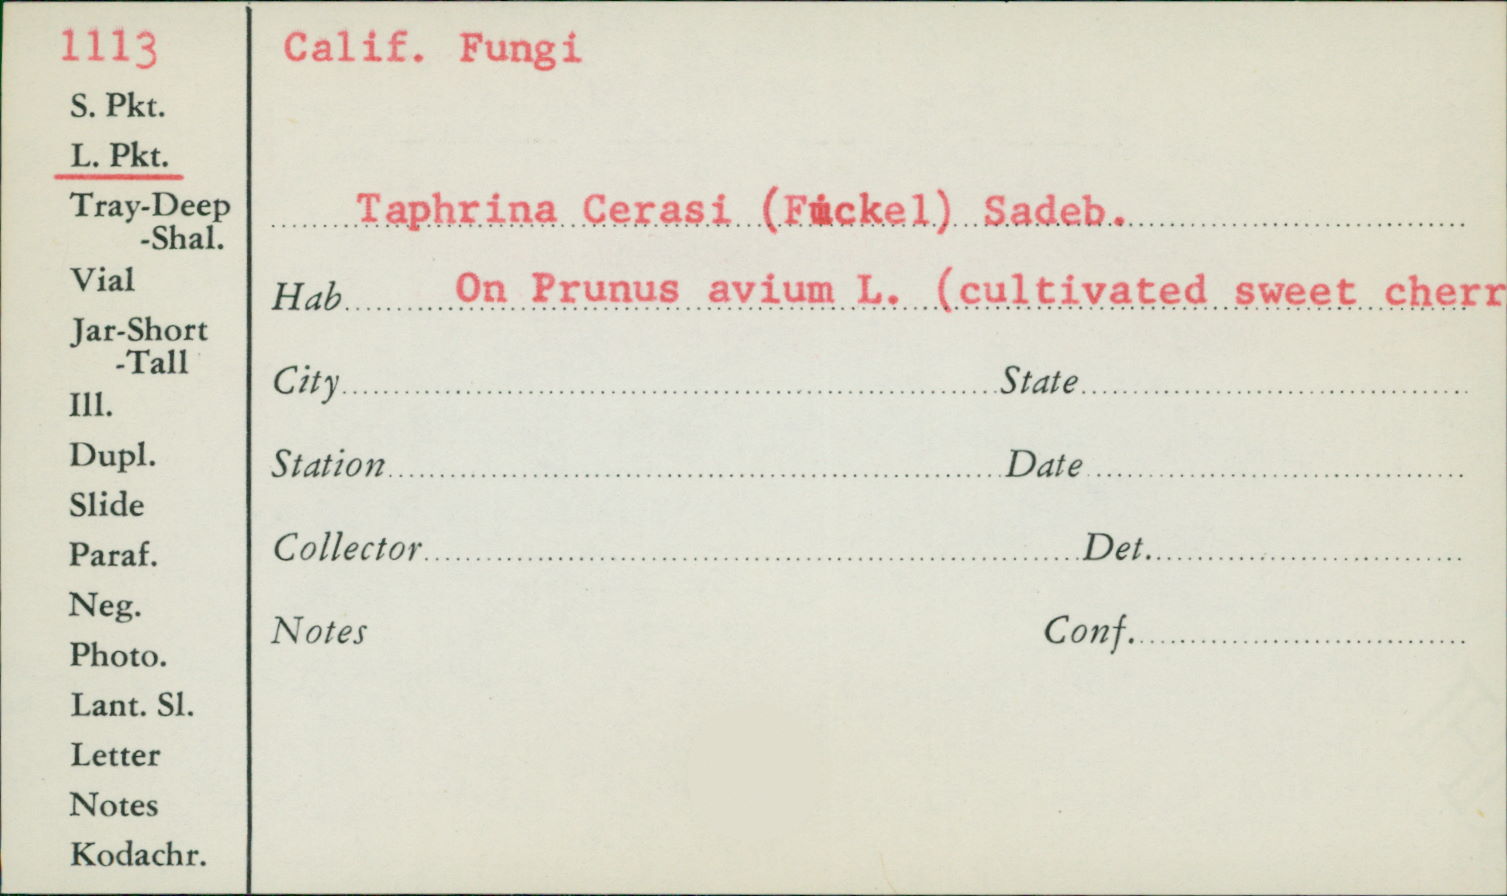 1113
Calif. Fungi
S. Pkt.
L. Pkt.
Tray-Deep
-Shal.
Vial
Jar-Short
-Tall
Ill.
Dupl.
Slide
Paraf.
Neg.
Photo.
Lant. Sl.
Letter
Notes
Kodachr.
Taphrina Cerasi (Fuckel) Sadeb.
Hab. On Prunus avium L. (cultivated sweet cherr
City State
Station Date
Collector Det.
Notes Conf.